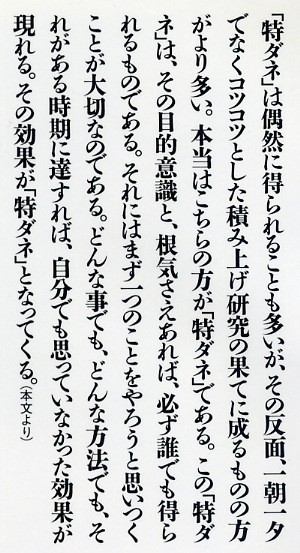 「特ダネ」は偶然に得られることも多いが、その反面、一朝一夕
でなくコツコツとした積み上げ研究の果てに成るものの方
がより多い。本当はこちらの方が「特ダネ」である。この「特ダ
ネ」は、その目的意識と、根気さえあれば、必ず誰でも得ら
れるものである。それにはまず一つのことをやろうと思いつく
ことが大切なのである。どんな事でも、どんな方法でも、そ
れがある時期に達すれば、自分でも思っていなかった効果が
現れる。その効果が「特ダネ」となってくる。(本文より)